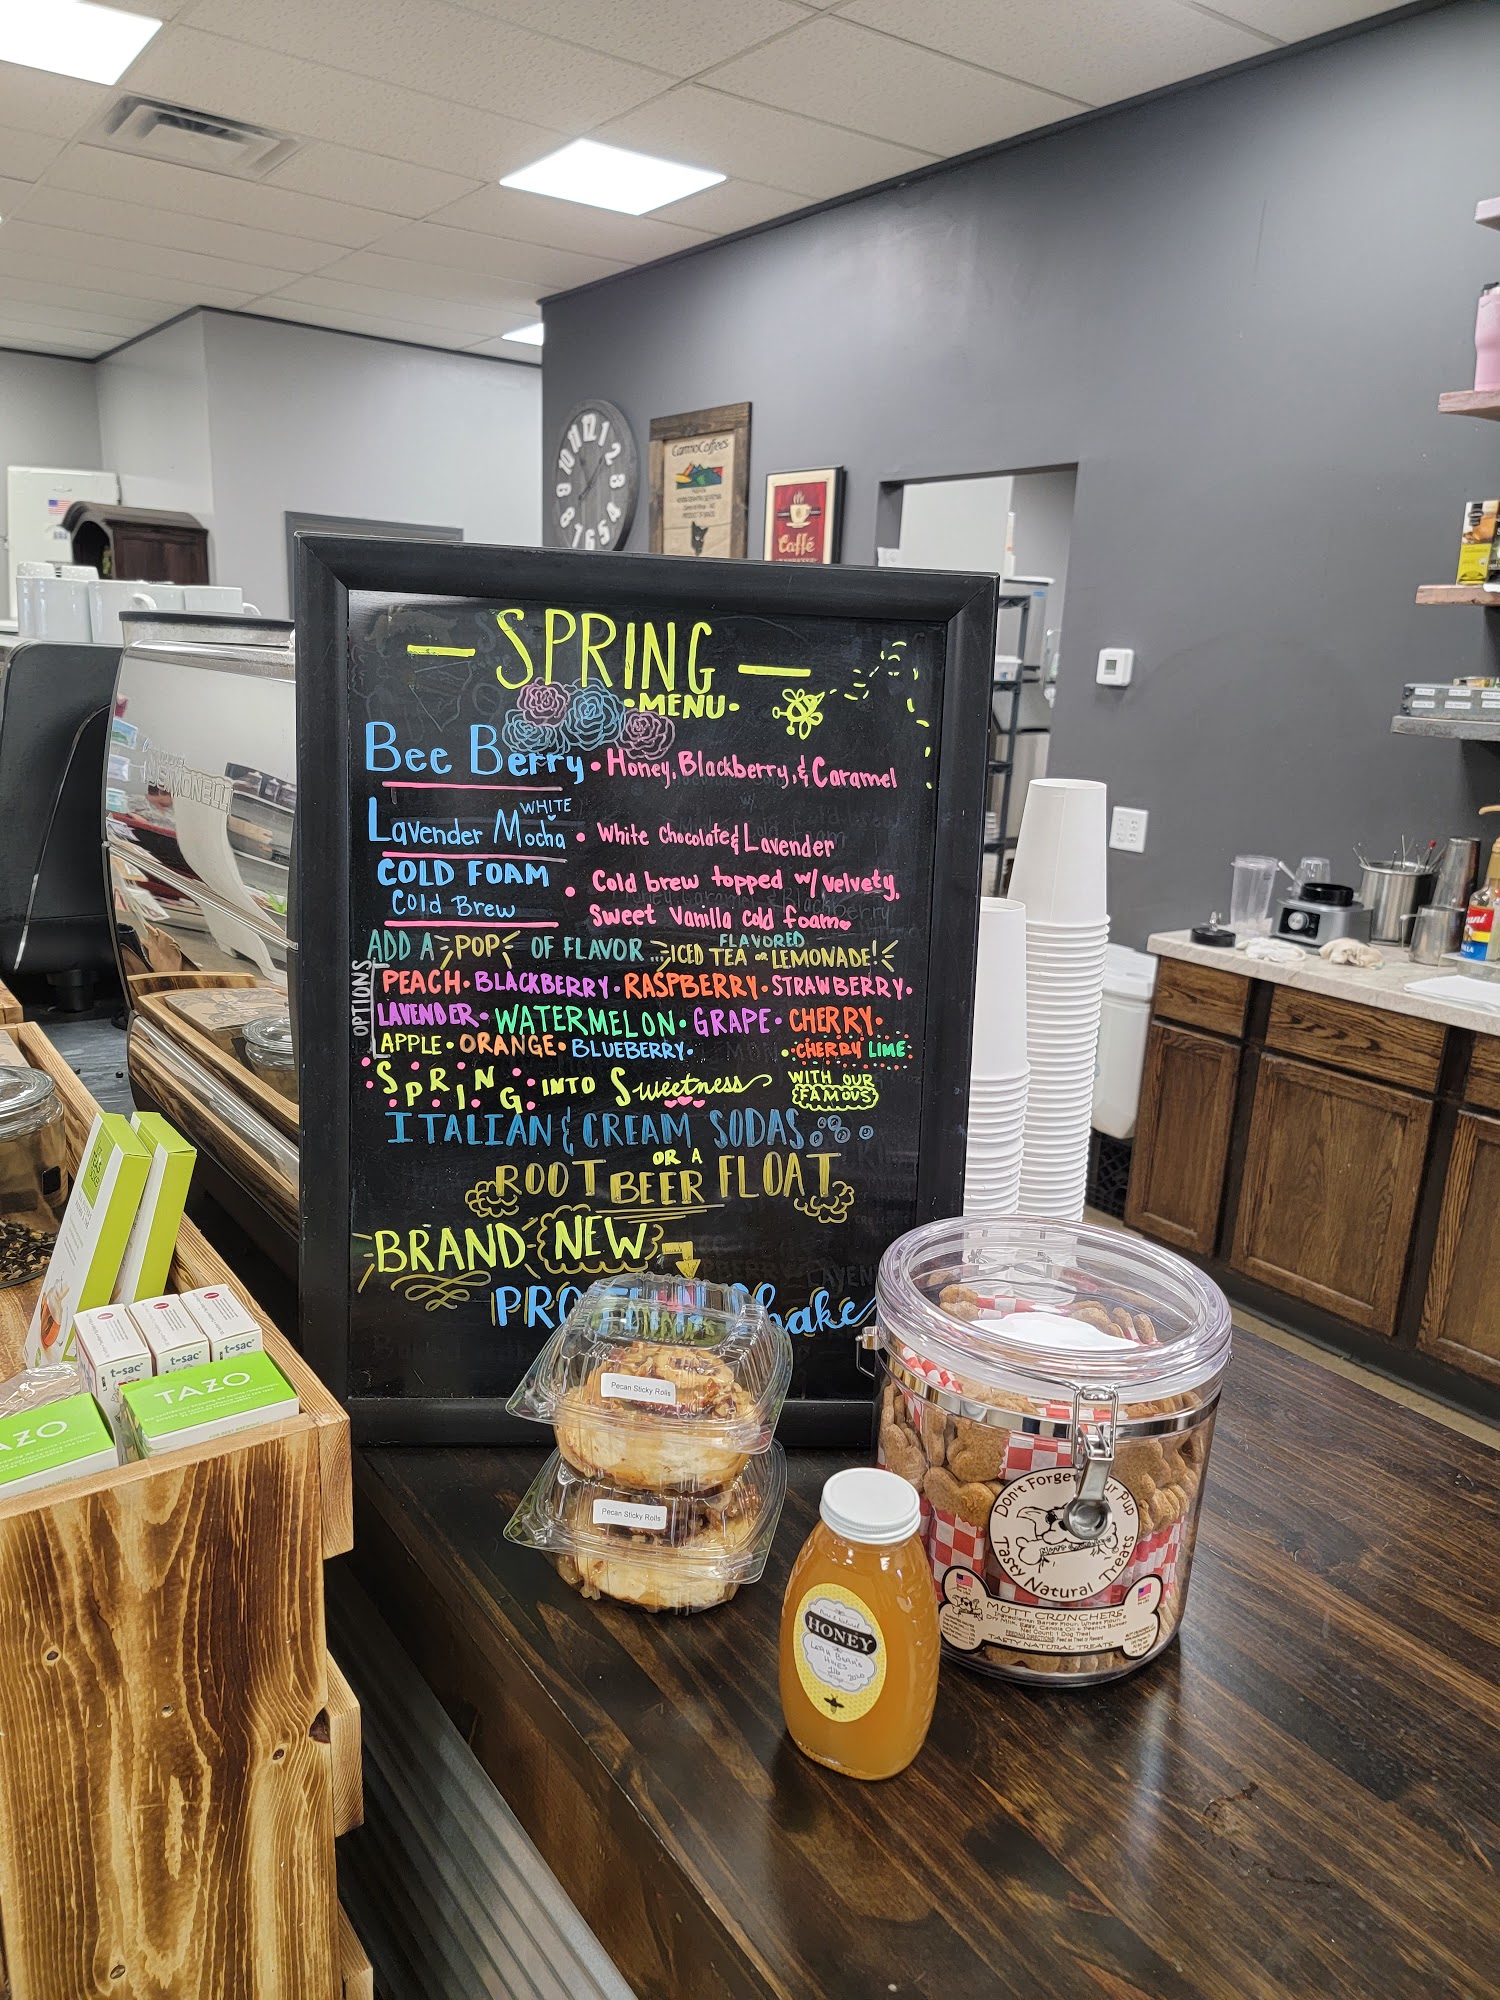 12
11
1
10
2
3
8
4
7
6
5
CarmoCoffees
Caffé
SPRING
MENU
Bee Berry • Honey, Blackberry, & Caramel
WHITE
Lavender Mocha • White Chocolate & Lavender
COLD FOAM
Cold Brew
• Cold brew topped w/ velvety,
Sweet Vanilla cold foam
FLAVORED
ADD A POP OF FLAVOR ... ICED TEA or LEMONADE!
OPTIONS
PEACH • BLACKBERRY • RASPBERRY • STRAWBERRY •
LAVENDER • WATERMELON • GRAPE • CHERRY •
APPLE • ORANGE • BLUEBERRY • • CHERRY LIME
SPRING INTO Sweetness WITH OUR
FAMOUS
ITALIAN & CREAM SODAS
OR A
ROOT BEER FLOAT
BRAND NEW
Pecan Sticky Rolls
Pecan Sticky Rolls
t-sac
t-sac
t-sac
TAZO
AZO
HONEY
Don't Forget Your Pup
Tasty Natural Treats
MUTT CRUNCHERS
TASTY NATURAL TREATS